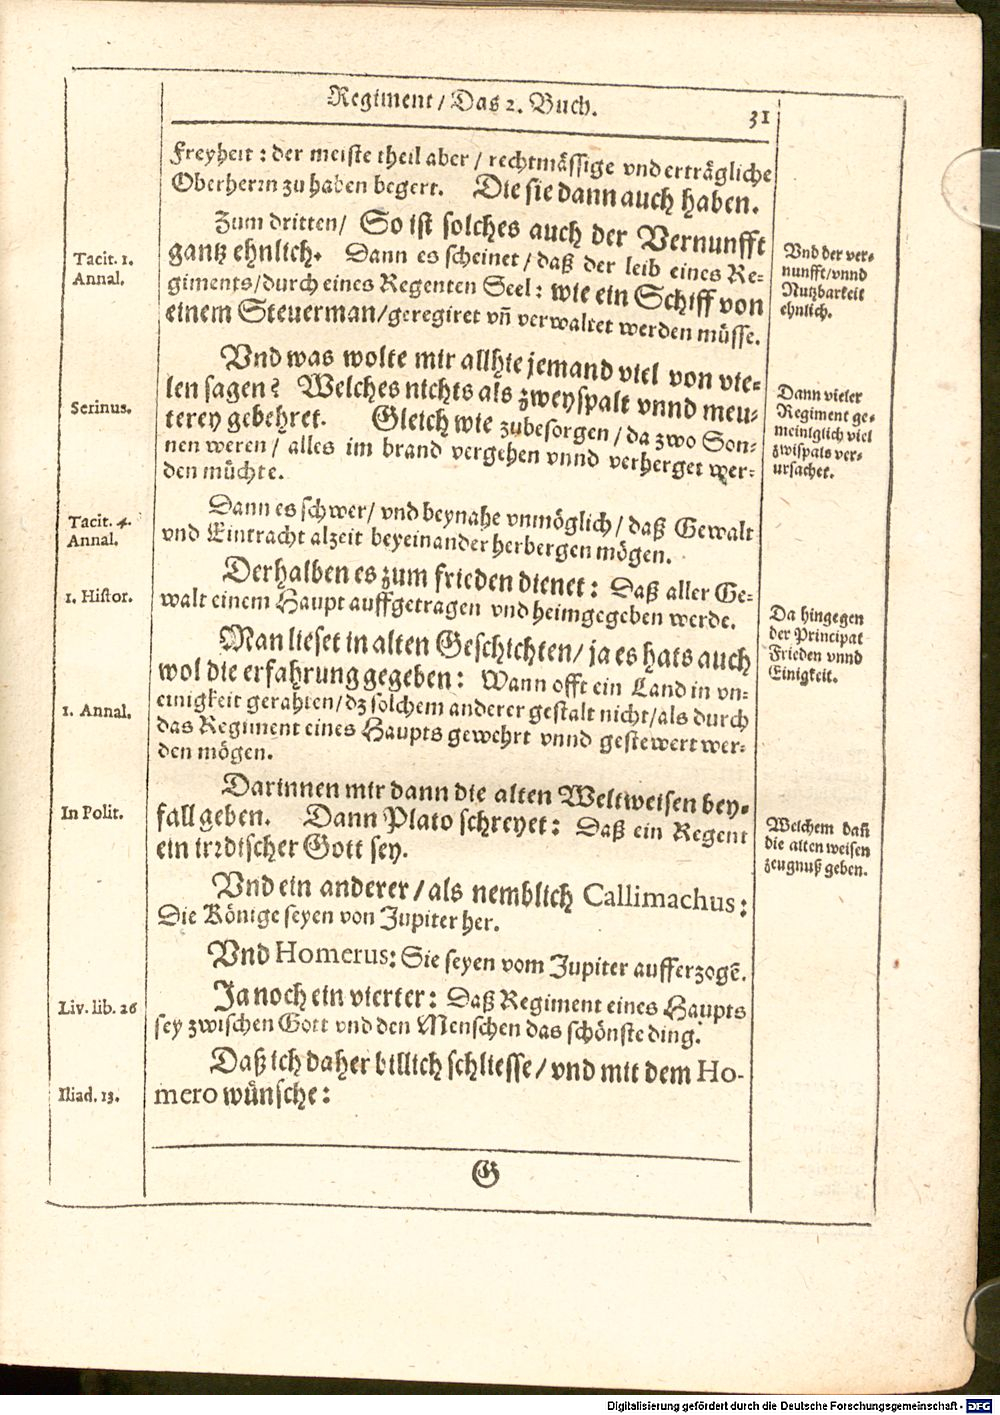 Regiment / Das 2. Buch.
31
Freyheit : der meiste theil aber / rechtmässige vnd erträgliche
Oberherrn zu haben begert. Die sie dann auch haben.
Zum dritten / So ist solches auch der Vernunfft
gantz ehnlich. Dann es scheinet / daß der leib eines Re-
giments / durch eines Regenten Seel : wie ein Schiff von
einem Steuerman / geregiret vñ verwaltet werden müsse.
Vnd was wolte mir allhie jemand viel von vie-
len sagen? Welches nichts als zweyspalt vnnd meu-
terey gebehret. Gleich wie zubesorgen / da zwo Son-
nen weren / alles im brand vergehen vnnd verherget wer-
den müchte.
Dann es schwer / vnd beynahe vnmöglich / daß Gewalt
vnd Eintracht alzeit beyeinander herbergen mögen.
Derhalben es zum frieden dienet : Daß aller Ge-
walt einem Haupt auffgetragen vnd heimgegeben werde.
Man lieset in alten Geschichten / ja es hats auch
wol die erfahrung gegeben : Wann offt ein Land in vn-
einigkeit gerahten / dz solchem anderer gestalt nicht / als durch
das Regiment eines Haupts gewehrt vnnd gestewert wer-
den mögen.
Darinnen mir dann die alten Weltweisen bey-
fall geben. Dann Plato schreyet : Daß ein Regent
ein irrdischer Gott sey.
Vnd ein anderer / als nemblich Callimachus :
Die Könige seyen von Jupiter her.
Vnd Homerus : Sie seyen vom Jupiter aufferzogẽ.
Ja noch ein vierter : Daß Regiment eines Haupts
sey zwischen Gott vnd den Menschen das schönste ding.
Daß ich daher billich schliesse / vnd mit dem Ho-
mero wünsche :
G
Tacit. 1.
Annal.
Serinus.
Tacit. 4.
Annal.
1. Histor.
1. Annal.
In Polit.
Liv. lib. 26
Iliad. 13.
Vnd der ver-
nunfft / vnnd
Nutzbarkeit
ehnlich.
Dann vieler
Regiment ge-
meiniglich viel
zwispals ver-
ursachet.
Da hingegen
der Principat
Frieden vnnd
Einigkeit.
Welchem dañ
die alten weisen
zeugnuß geben.
Digitalisierung gefördert durch die Deutsche Forschungsgemeinschaft - DFG